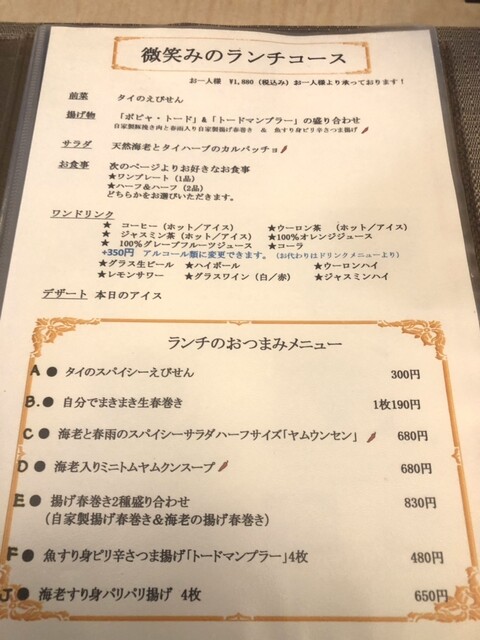 微笑みのランチコース
お一人様 ¥1,880(税込み)お一人様より承っております!
前菜 タイのえびせん
揚げ物 「ポピャ・トード」&「トードマンプラー」の盛り合わせ
自家製豚挽き肉と春雨入り自家製揚げ春巻き & 魚すり身ピリ辛さつま揚げ
サラダ 天然海老とタイハーブのカルパッチョ
お食事 次のページよりお好きなお食事
★ワンプレート(1品)
★ハーフ&ハーフ(2品)
どちらかをお選びいただきます。
ワンドリンク
★ コーヒー(ホット/アイス) ★ウーロン茶 (ホット/アイス)
★ ジャスミン茶(ホット/アイス) ★100%オレンジジュース
★ 100%グレープフルーツジュース ★コーラ
+350円 アルコール類に変更できます。(お代わりはドリンクメニューより)
★グラス生ビール ★ハイボール ★ウーロンハイ
★レモンサワー ★グラスワイン(白/赤) ★ジャスミンハイ
デザート 本日のアイス
ランチのおつまみメニュー
A ● タイのスパイシーえびせん 300円
B. ● 自分でまきまき生春巻き 1枚190円
C ● 海老と春雨のスパイシーサラダハーフサイズ「ヤムウンセン」 680円
D ● 海老入りミニトムヤムクンスープ 680円
E ● 揚げ春巻き2種盛り合わせ 830円
(自家製揚げ春巻き&海老の揚げ春巻き)
F ● 魚すり身ピリ辛さつま揚げ「トードマンプラー」4枚 480円
J ● 海老すり身パリパリ揚げ 4枚 650円